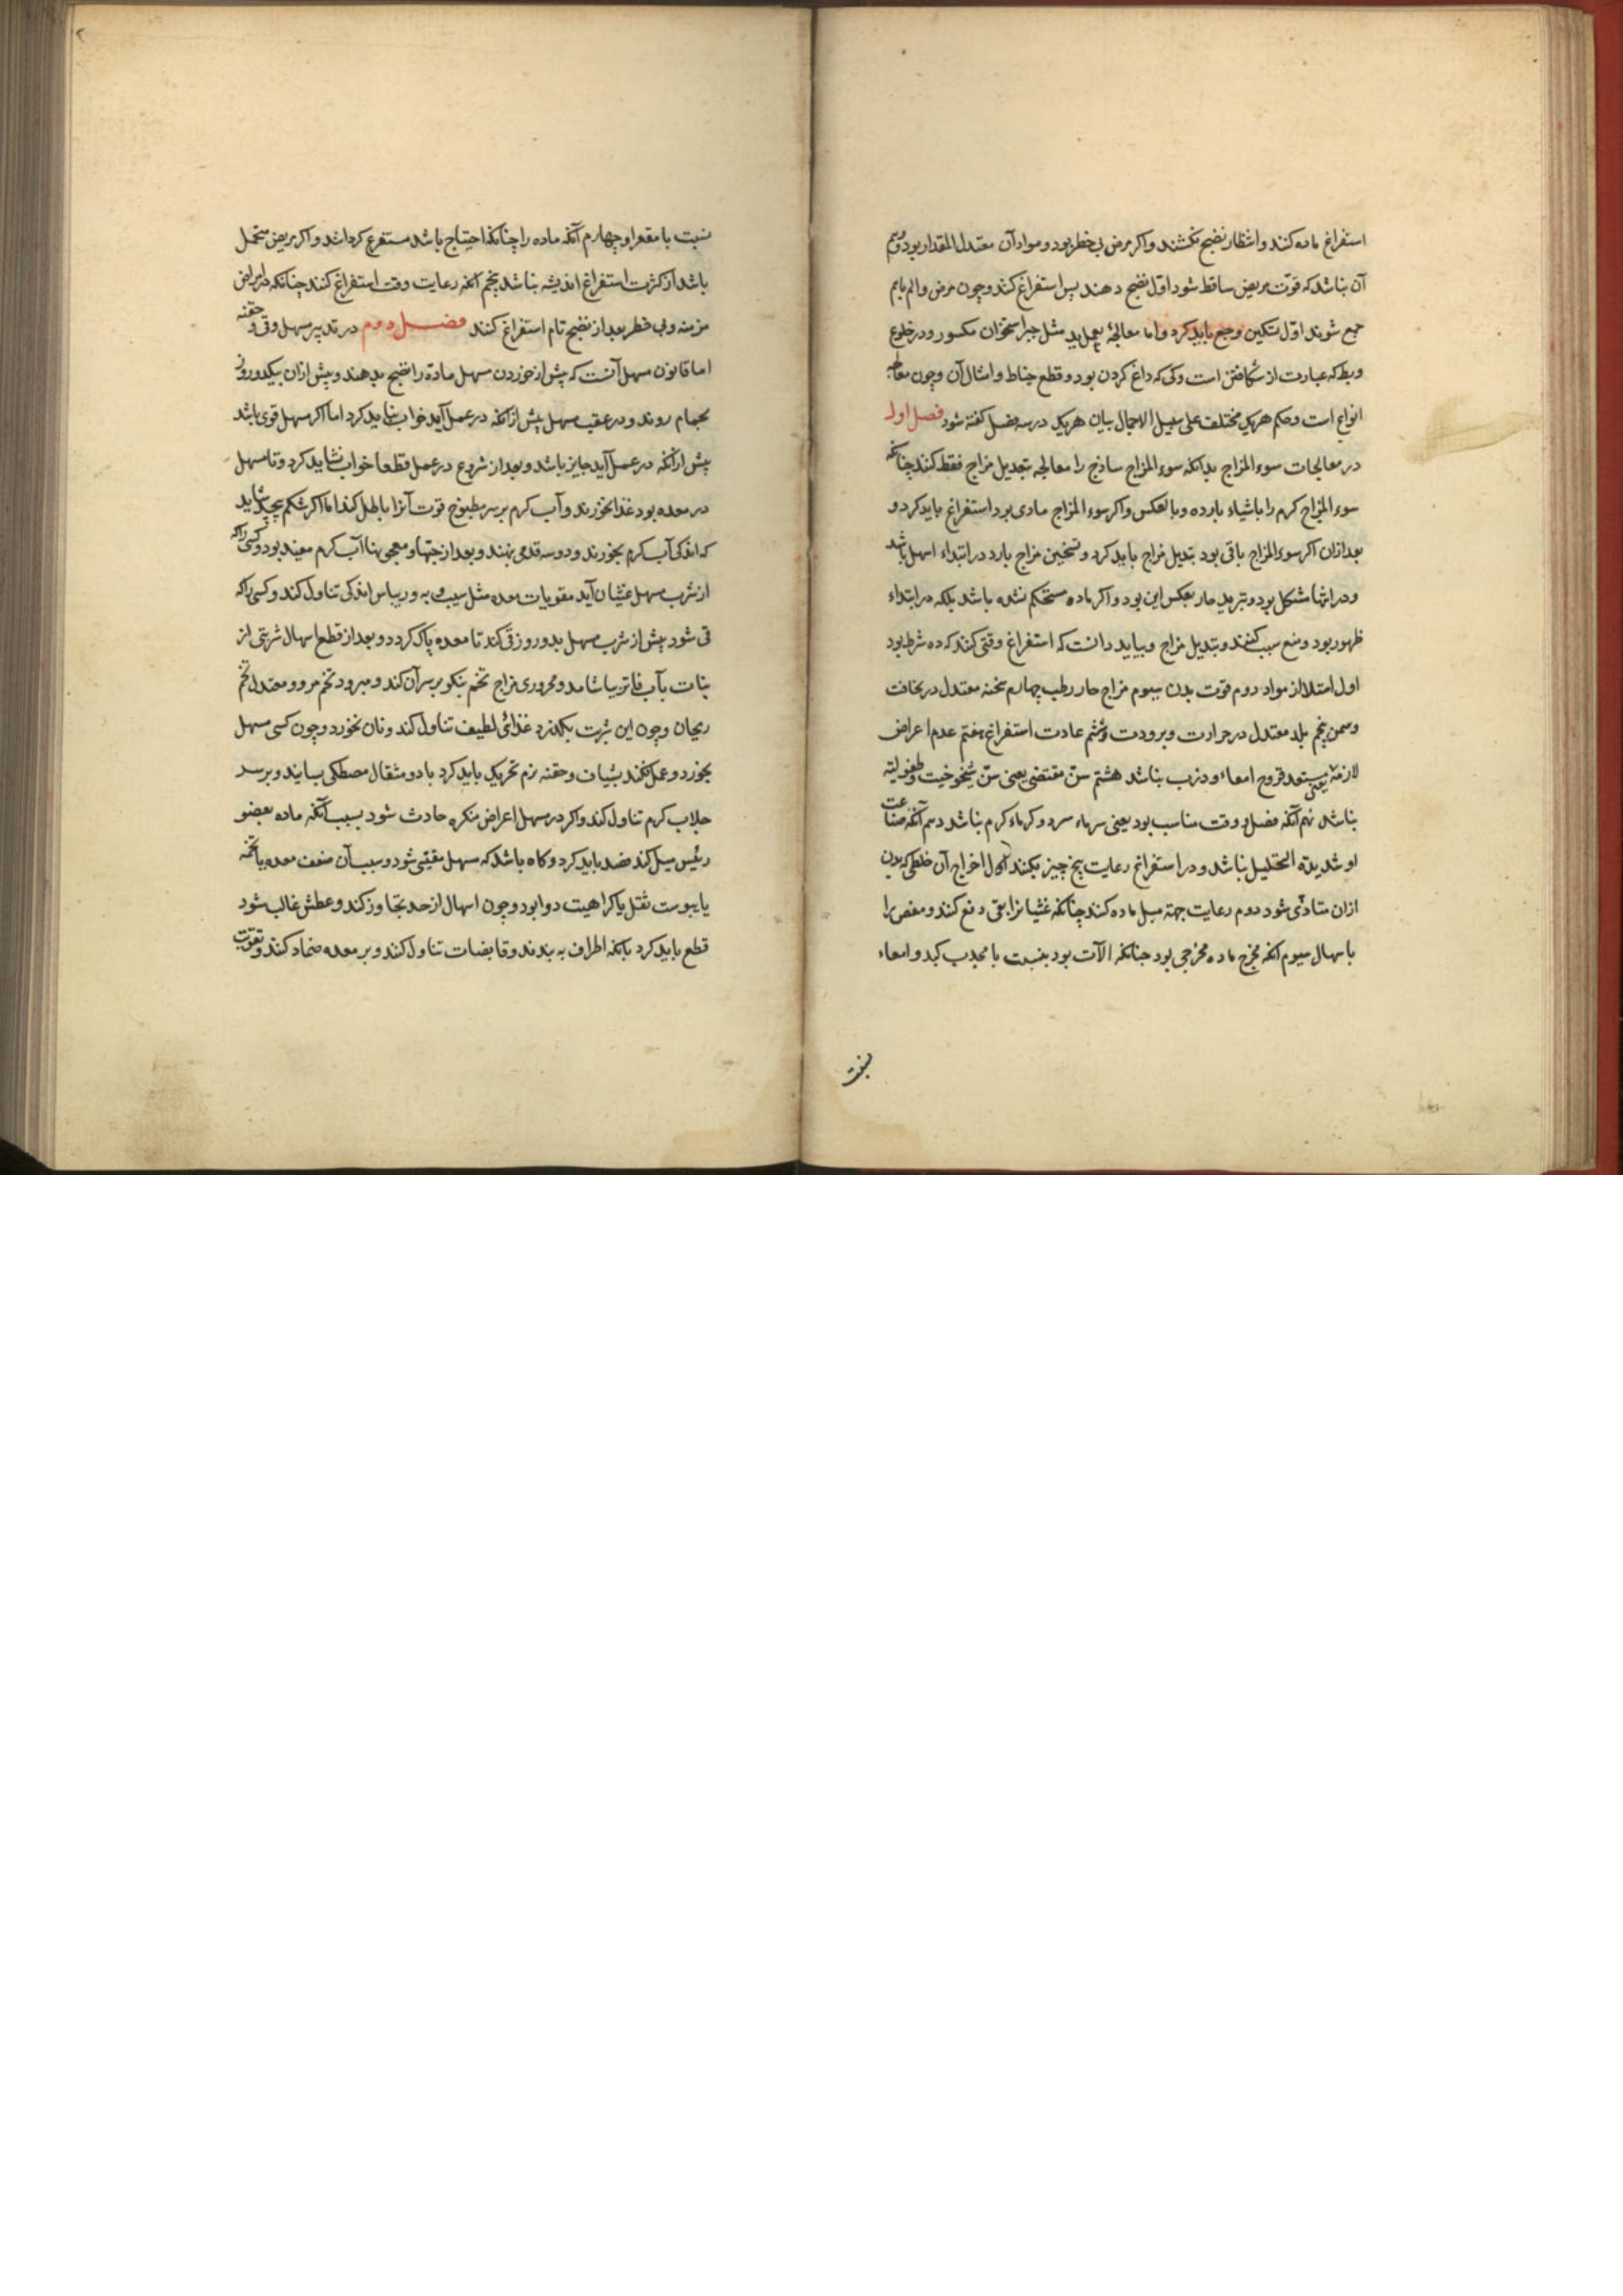 استفراغ ماده کنند و انتظار نضج نکشند و اکر مرض بی خطر بود و مواد آن معتدل المقدار بود و بیم
آن نباشد که قوت مریض ساقط شود اول نضج دهند پس استفراغ کنند و چون مرض و الم باهم
جمع شوند اول تسکین وجع باید کرد و اما معالجهٔ بعمل ید مثل جبر استخوان مکسور و در خلوع
و بط که عبارت از شکافتن است و کی که داغ کردن بود و قطع خیاط و امثال آن و چون معالجه
انواع است و حکم هریک مختلف علی سبیل الاجمال بیان هریک در سه فصل کفته شود فصل اول
در معالجات سوء المزاج بدانکه سوء المزاج ساذج را معالجه بتعدیل مزاج فقط کنند چنانکه
سوء المزاج کرم را باشیاء بارده و بالعکس و اکر سوء المزاج مادی بود استفراغ باید کرد و
بعد ازان اکر سوء المزاج باقی بود تبدیل مزاج باید کرد و تسخین مزاج بارد در ابتداء اسهل باشد
و در انتها مشکل بود و تبرید حار بعکس این بود و اکر ماده مستحکم نشده باشد بلکه در ابتداء
ظهور بود و منع سبب کنند و تبدیل مزاج و بباید دانست که استفراغ وقتی کنند که ده شرط بود
اول امتلا از مواد دوم قوت بدن سیوم مزاج حار رطب چهارم سحنه معتدل در نحافت
و سمن پنجم بلد معتدل در حرارت و برودت و ششم عادت استفراغ هفتم عدم اعراض
لازمه یعنی مستعد قروح امعاء و ذرب نباشد هشتم سن مقتضی یعنی سن شیخوخیت و طفولیته
نباشد نهم آنکه فصل و وقت مناسب بود یعنی سرماء سرد و کرماء کرم نباشد دهم آنکه صناعت
او شدیدة التحلیل نباشد و در استفراغ رعایت پنج چیز بکنند اول اخراج آن خلط که بدن
ازان متاذی شود دوم رعایت جهة میل ماده کنند چنانکه غثیانرا بقی دفع کنند و مغص را
باسهال سیوم آنکه مخرج ماده مخرجی بود چنانکه الآت بود بنسبت با محدب کبد و امعاء
نسبت
نسبت با مقعر او چهارم آنکه ماده را چنانکه احتیاج باشد مستفرغ کردانند و اکر مریض متحمل
باشد از کثرت استفراغ اندیشه نباشد پنجم آنکه رعایت وقت استفراغ کنند چنانکه در امراض
مزمنه و بی خطر بعد از نضج تام استفراغ کنند فصل دوم در تدبیر مسهل و قی و حقنه
اما قانون مسهل آنست که پیش از خوردن مسهل ماده را نضج بدهند و پیش ازان بیکدو روز
بحمام روند و در عقب مسهل پیش از آنکه در عمل آید خواب نباید کرد اما اکر مسهل قوی باشد
پیش از آنکه در عمل آید جایز باشد و بعد از شروع در عمل قطعا خواب نشاید کرد و تا مسهل
در معده بود غذا نخورند و آب کرم بر سر مطبوخ قوت آنرا باطل کند اما اکر شکم بپیچد شاید
که اندکی آب کرم بخورند و دو سه قدمی بنهند و بعد از حبها و معجونها آب کرم مفید بود و کسی را که
از شرب مسهل غثیان آید مقویات معده مثل سیب و به و ریباس اندکی تناول کند و کسی را که
قی شود پیش از شرب مسهل بدو روز قی کند تا معده پاک کردد و بعد از قطع اسهال شربتی از
نبات بآب فاتر بیاشامد و محروری مزاج تخم بنکو بر سر آن کند و مبرود تخم مرو و معتدل تخم
ریحان و چون این شربت بکذرد غذائی لطیف تناول کند و نان نخورد و چون کسی مسهل
بخورد و عمل نکند بشیاف و حقنه نرم تحریک باید کرد یا دو مثقال مصطکی بسایند و بر سر
جلاب کرم تناول کند و اکر در مسهل اعراض منکره حادث شود بسبب آنکه ماده بعضو
رئیس میل کند فصد باید کرد و کاه باشد که مسهل مقیی شود و سبب آن ضعف معده یا تخمه
یا یبوست ثفل یا کراهیت دوا بود و چون اسهال از حد تجاوز کند و عطش غالب شود
قطع باید کرد بانکه اطراف به بندند و قابضات تناول کنند و بر معده ضماد کنند و تقویت